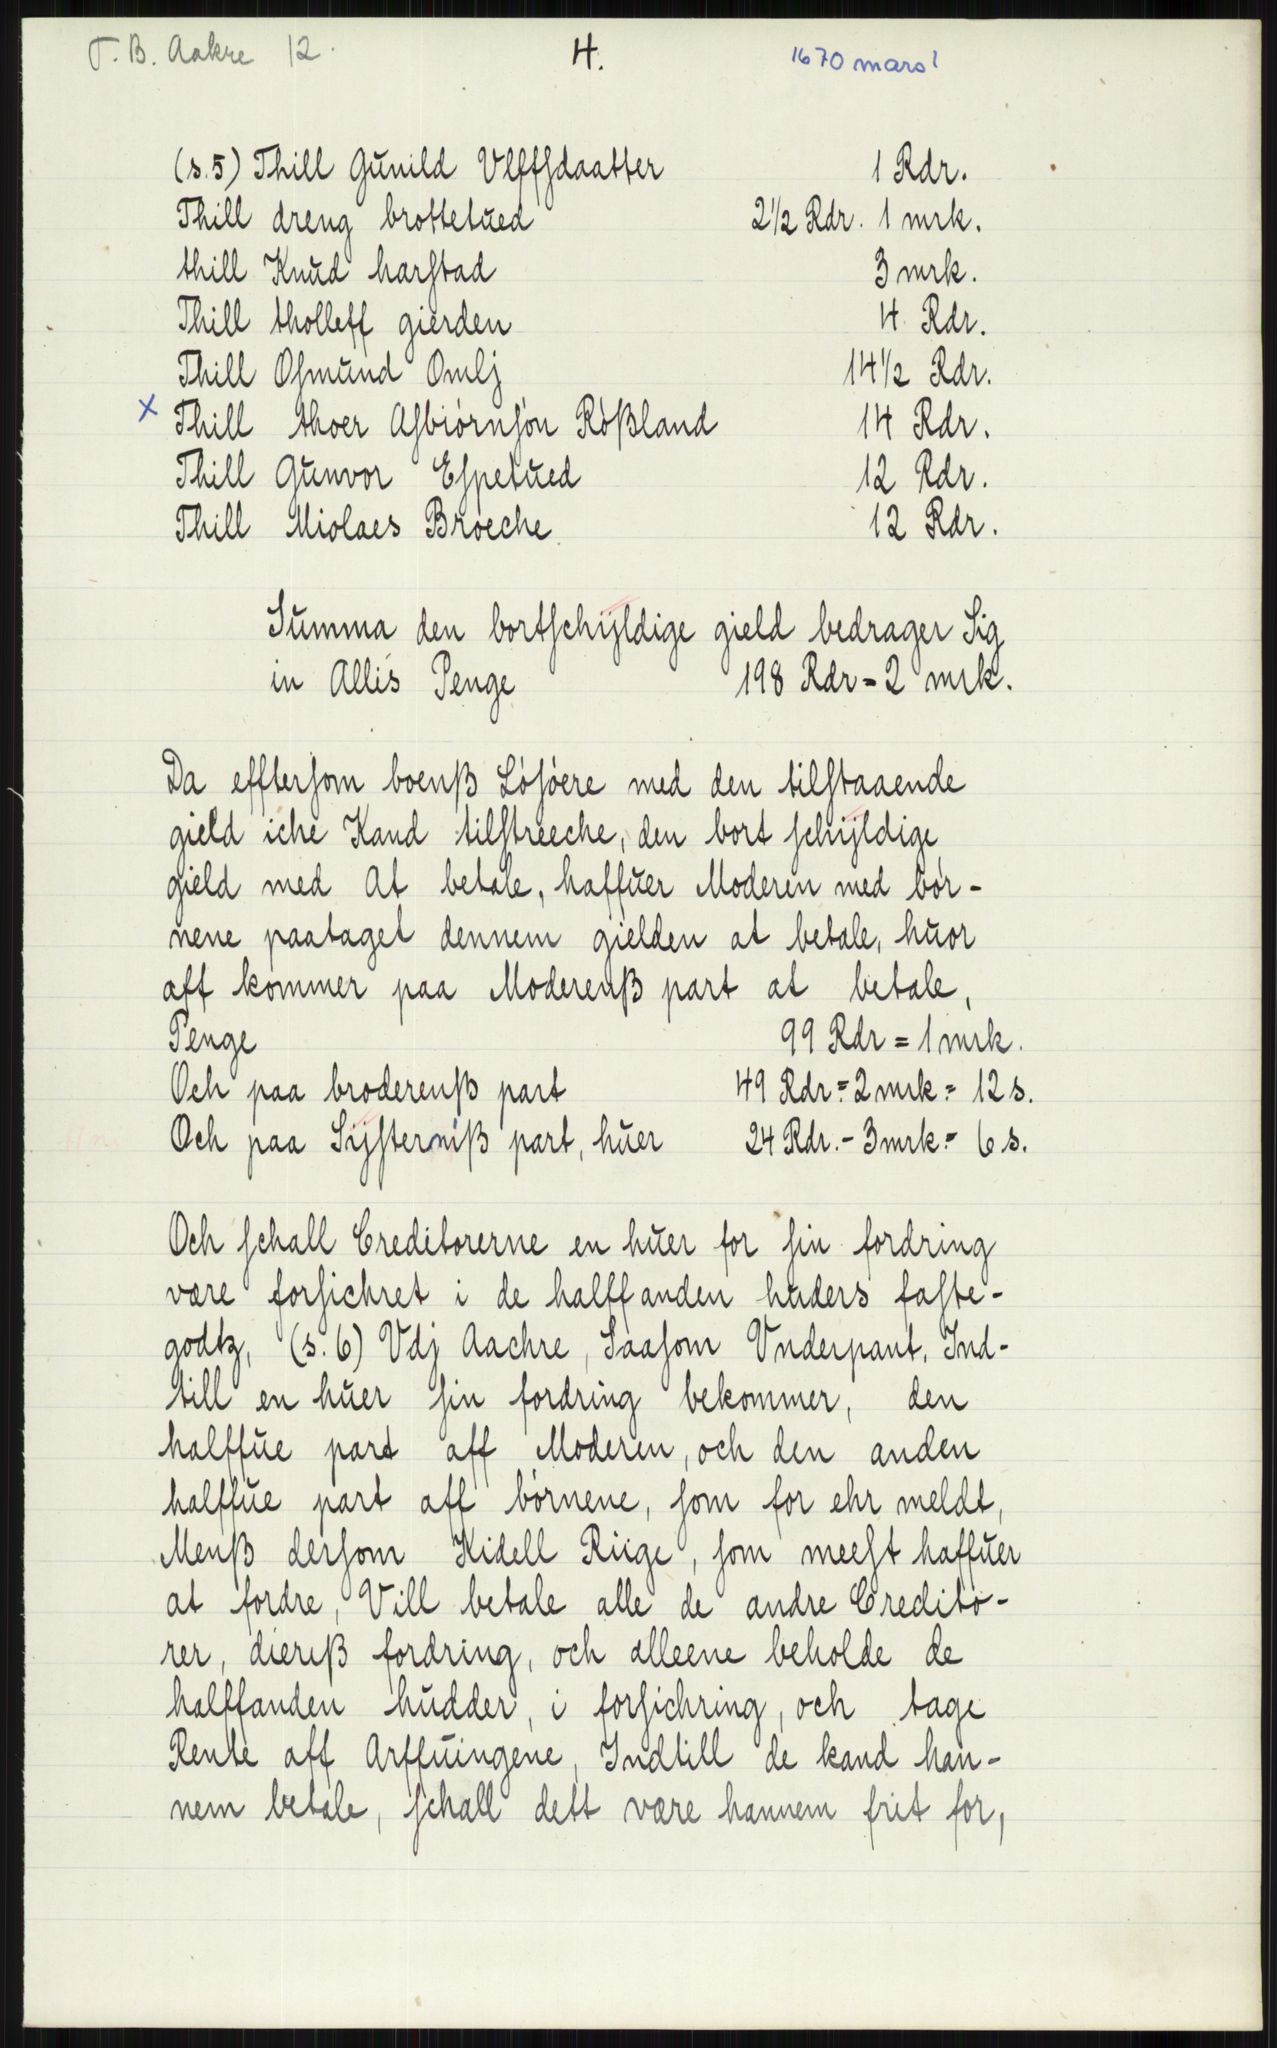 T. B. Aakre 12. 4. 1670 mars!
(s.5) Thill Gŭnild Vlffsdaatter 1 Rdr.
Thill dreng brottetŭed 2½ Rdr. 1 mrk.
thill Knŭd harstad 3 mrk.
Thill tholleff gierden 4 Rdr.
Thill Osmŭnd Omlj 14½ Rdr.
x Thill thoer Asbiórnsón Róßland 14 Rdr.
Thill Gŭnvor Espetŭed 12 Rdr.
Thill Miolaes Broeche 12 Rdr.
Sŭmma den bortschÿldige gield bedrager Sig
in Allis Penge 198 Rdr = 2 mrk.
Da efftersom boenß Lósóere med den tilstaaende
gield iche Kand tilstreeche, den bort schÿldige
gield med At betale, haffŭer Moderen med bór-
nene paataget dennem gielden at betale, hŭor
aff kommer paa Moderenß part at betale,
Penge 99 Rdr = 1 mrk.
Och paa broderenß part 49 Rdr = 2 mrk = 12 s.
Och paa Sÿsterniß part, hŭer 24 Rdr. - 3 mrk = 6 s.
Och schall Creditorerne en hŭer for sin fordring
være forsichret i de halffanden hŭders faste-
godtz, (s. 6) Vdj Aachre, Saasom Vnderpant, Ind-
till en hŭer sin fordring bekommer, den
halffŭe part aff Moderen, och den anden
halffŭe part aff bórnene, som for ehr meldt,
Menß dersom Kidell Riige, som meest haffŭer
at fordre, Vill betale alle de andre Credito-
rer, dieriß fordring, och alleene beholde de
halffanden hŭdder, i forsichring, och tage
Rente aff Arffŭingene, Indtill de kand han-
nem betale, schall dett være hannem frit for,